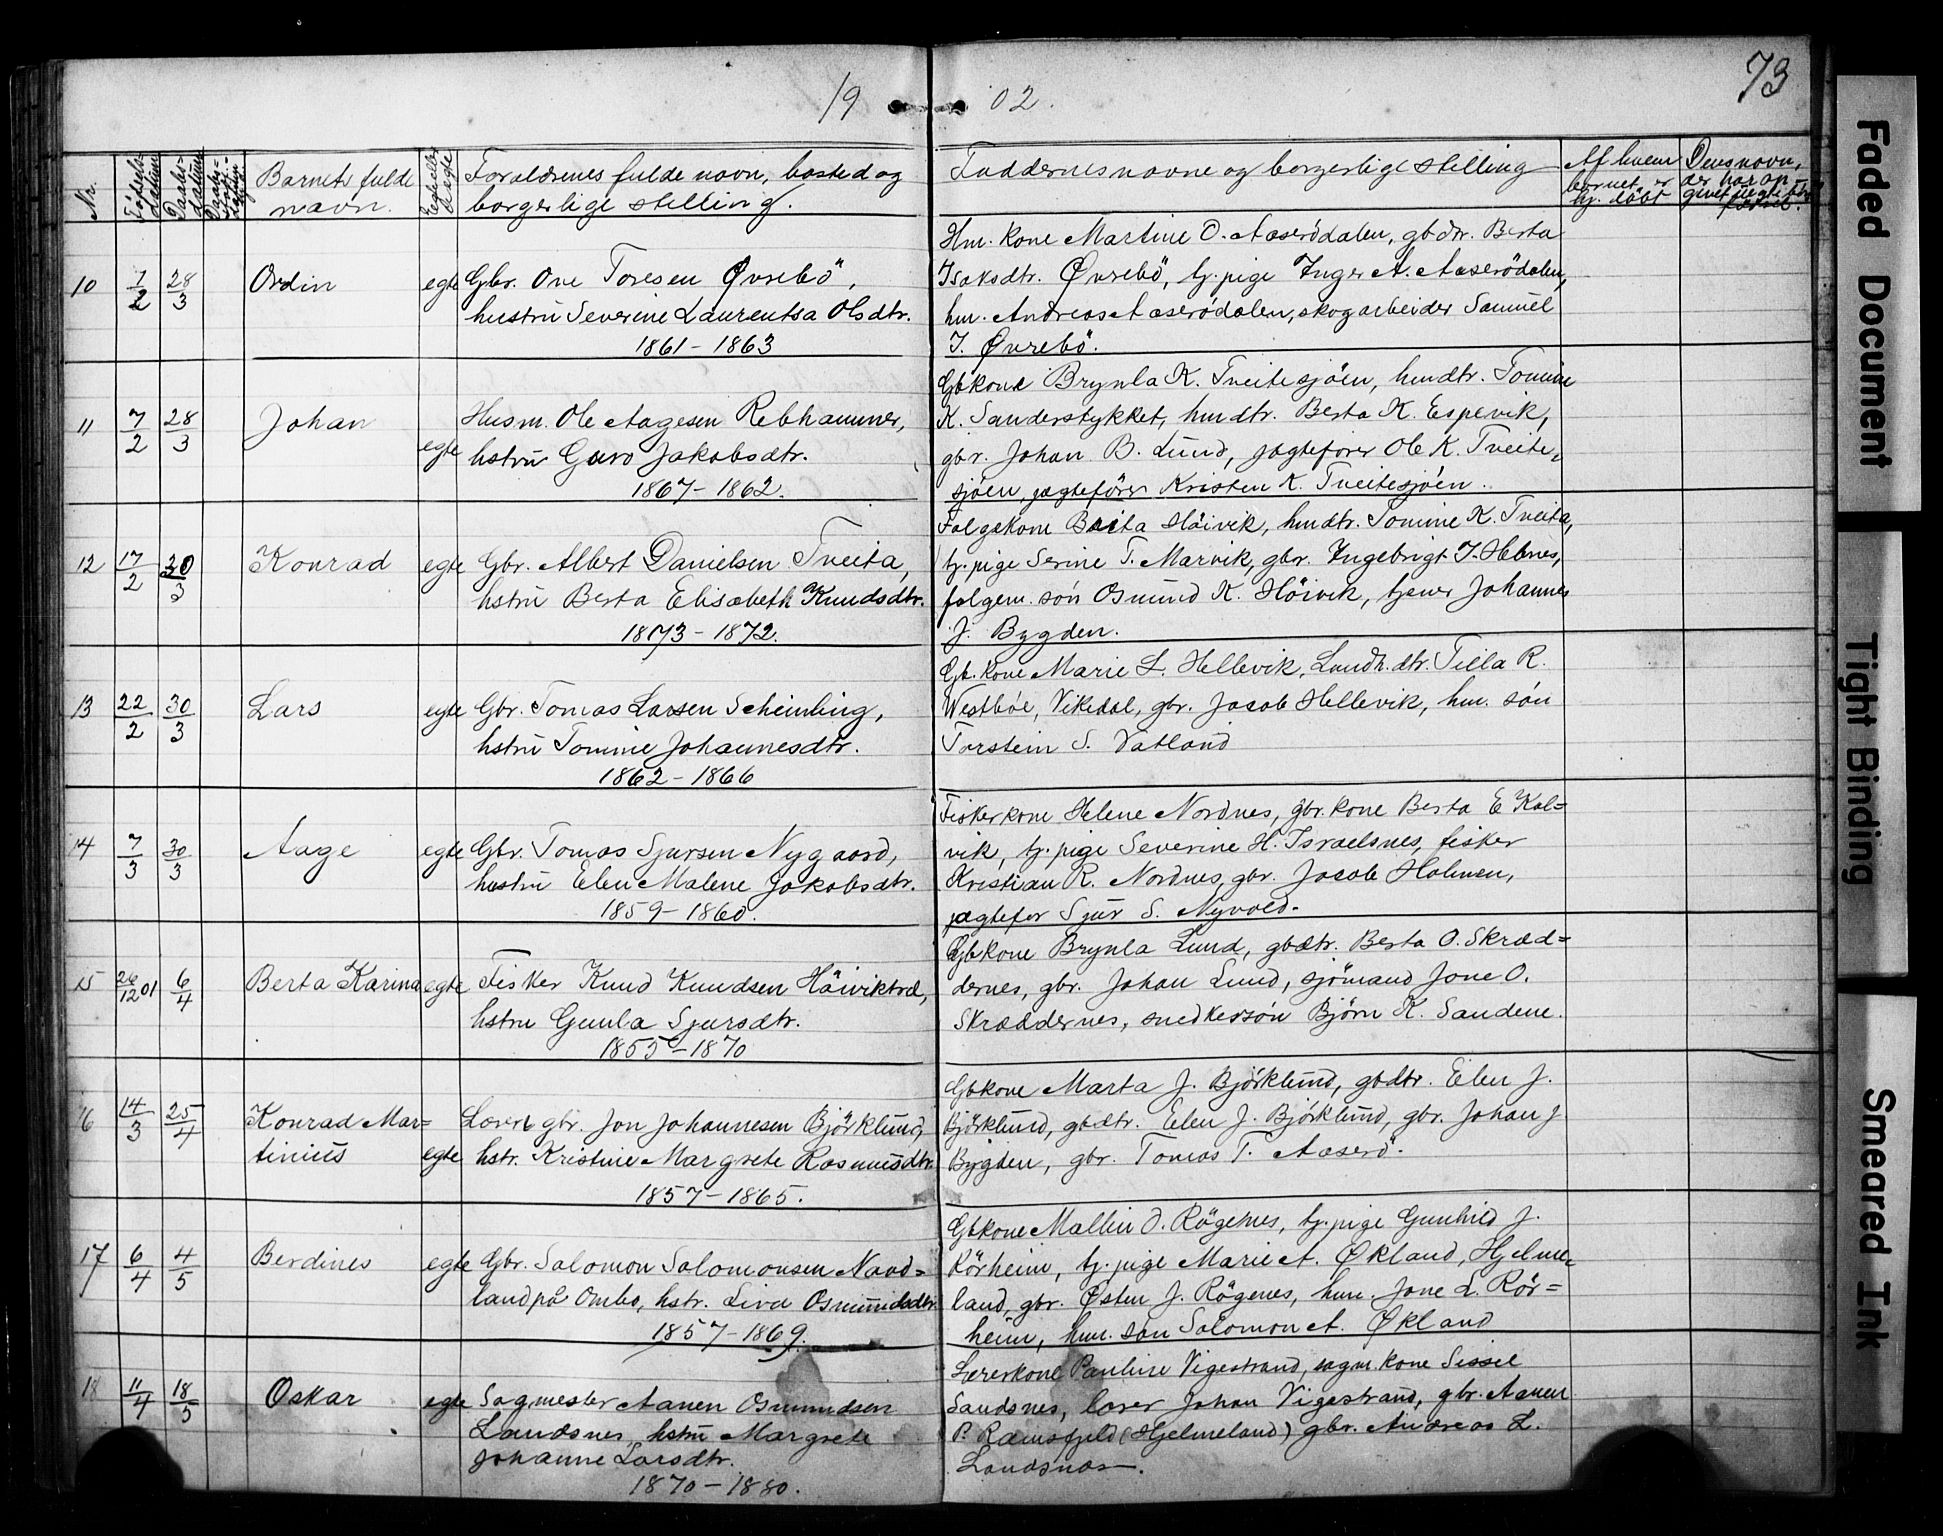 19 02. 73
Nr. Fødsels-datum Daabs-datum Barnets fulde navn. Forældrenes fulde navn, bosted og borgerlige stilling. Faddernes navne og borgerlige stilling Af hvem barnet er hj. døbt
10 7/2 28/3 Ordin egte Gbr. Ove Toresen Øvrebö,
hustru Severine Laurentsa Olsdtr.
1861 - 1863
Hm. kone Martine O. Aaserödalen, gbdtr. Berta
Isaksdtr. Øvrebö, tj. pige Inger A. Aaserödalen,
hm. Andreas Aaserödalen, skogarbeider Samuel
I. Øvrebö.
11 7/2 28/3 Johan egte Husm. Ole Aagesen Rebhammer,
hstru Guro Jakobsdtr.
1867 - 1862.
Gbkone Brynla K. Tveitesjöen, hmdtr. Tomine
K. Sanderstykket, hmdtr. Berta K. Espevik,
gbr. Johan B. Lund, jægtefører Ole K. Tveite-
sjöen, jægtefører Kristen K. Tveitesjöen.
12 17/2 30/3 Konrad egte Gbr. Albert Danielsen Tveita,
hstru Berta Elisabeth Knudsdtr.
1873 - 1872.
Folgekone Brita Höivik, hmdtr. Tomine K. Tveita,
tj. pige Serine T. Marvik, gbr. Ingebrigt J. Helnes,
folgem. søn Osmund K. Höivik, tjener Johannes
J. Bygden.
13 22/2 30/3 Lars egte Gbr. Tomas Larsen Scheimling,
hstru Tomine Johannesdtr.
1862 - 1866
Gb. kone Marie L. Hellevik, Landh. dtr. Tilla R.
Westbøe, Vikedal, gbr. Jacob Hellevik, hm. søn
Torstein S. Vatland
14 7/3 30/3 Aage egte Gbr. Tomas Sjursen Nygaard,
hustru Elen Malene Jakobsdtr.
1859 - 1860.
Fiskerkone Helene Nordnes, gbr. kone Berta E Kal=
vik, tj. pige Severine H. Israelsnes, fisker
Kristian R. Nordnes, gbr. Jacob Holmen,
jægtefør Sjur S. Nyvold.
15 26/12 01 6/4 Berta Karina egte Fisker Knud Knudsen Höiviktræ,
hstru Gunla Sjursdtr.
1855 - 1870
Gbkone Brynla Lund, gbdtr. Berta O. Skræd=
dernes, gbr. Johan Lund, sjömand Jone O.
Skræddernes, snedkersøn Bjørn K. Sandene.
16 14/3 25/4 Konrad Mar=
tinius egte Lærer gbr. Jon Johannesen Björklund,
hstr. Kristine Margrete Rasmusdtr.
1857 - 1865.
Gbkone Marta J. Björklund, gbdtr. Elen J.
Björklund, gbdtr. Elen J. Björklund, gbr. Johan J
Bygden, gbr. Tomas T. Aaserö.
17 6/4 4/5 Berdines egte Gbr. Salomon Salomonsen Nord=
land på Ombo, hstr. Liva Osmundsdtr.
1857 - 1869.
Gbkone Mallin O. Rögenes, tj. pige Gunhild J.
Rörheim, tj. pige Marie A. Økland, Hjelme-
land, gbr. Østen J. Rögenes, hm. Jone L. Rör=
heim, hm. søn Salomon A. Økland
18 11/4 18/5 Oskar egte Sagmester Aanen Osmundsen
Landsnes, hstru Margrete
Johanne Larsdtr.
1870 - 1880.
Lærerkone Pauline Vigestrand, sagm. kone Sissel
Sandsnes, lærer Johan Vigestrand, gbr. Aanen
P. Ramsfjeld (Hjelmeland) gbr. Andreas L.
Landsnes.
Faded Document
Tight Binding
Smeared Ink